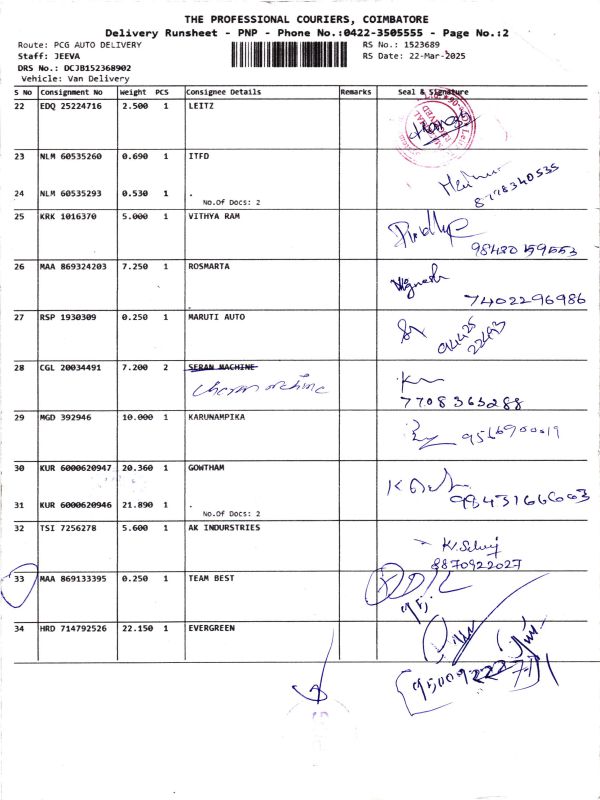 THE PROFESSIONAL COURIERS, COIMBATORE
Delivery Runsheet - PNP - Phone No.:0422-3505555 - Page No.:2
Route: PCG AUTO DELIVERY
RS No.: 1523689
Staff: JEEVA
RS Date: 22-Mar-2025
DRS No.: DCJB152368902
Vehicle: Van Delivery
S No Consignment No Weight PCS Consignee Details Remarks Seal & Signature
22 EDQ 25224716 2.500 1 LEITZ
23 NLM 60535260 0.690 1 ITFD
24 NLM 60535293 0.530 1 .
8778340535
No.Of Docs: 2
25 KRK 1016370 5.000 1 VITHYA RAM
26 MAA 869324203 7.250 1 ROSMARTA
Vignesh
7402296986
.
27 RSP 1930309 0.250 1 MARUTI AUTO
94425
22493
28 CGL 20034491 7.200 2 SERAN MACHINE
7708363288
29 MGD 392946 10.000 1 KARUNAMPIKA
9566900019
30 KUR 6000620947 20.360 1 GOWTHAM
31 KUR 6000620946 21.890 1 .
No.Of Docs: 2
32 TSI 7256278 5.600 1 AK INDURSTRIES
8870922027
33 MAA 869133395 0.250 1 TEAM BEST
34 HRD 714792526 22.150 1 EVERGREEN